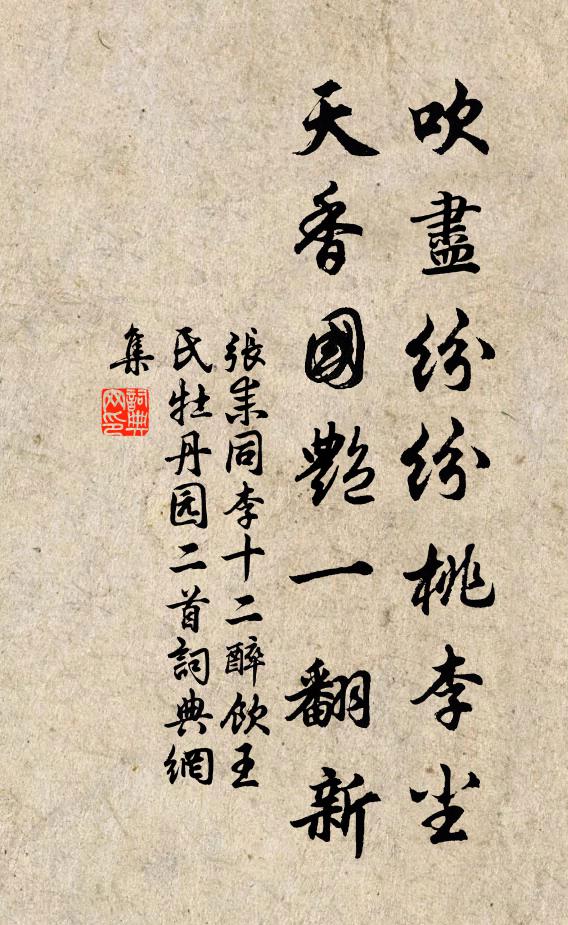 吹盡紛紛桃李尘
天香國艷一翻新
張耒同李十二醉飲王
氏牡丹园二首詞典網
集
詞典網印